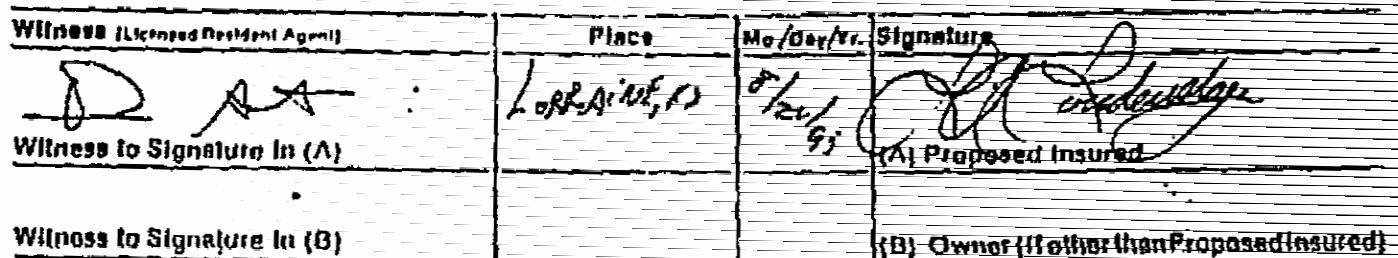 Witness (Licensed Resident Agent) Place Mo/Day/Yr. Signature
LORRAINE, KS 8/26/93
Witness to Signature in (A) (A) Proposed Insured
Witness to Signature in (B) (B) Owner (If other than Proposed Insured)